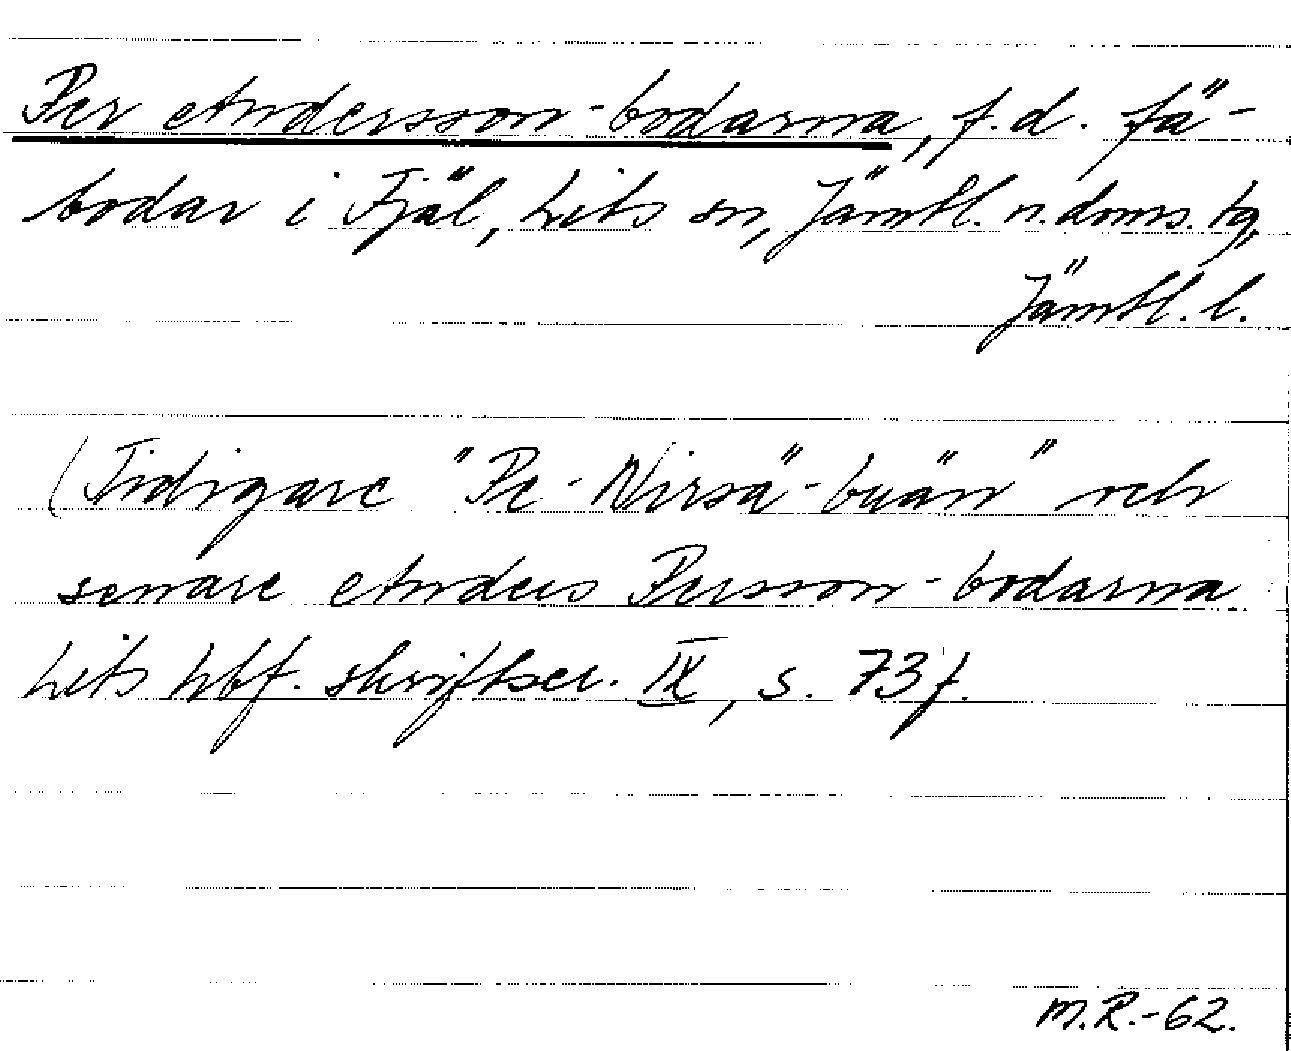 Per Andersson-bodarna, f.d. fä-
bodar i Fjäl, Lits sn, Jämtl. n. doms. tg,
Jämtl. l.
(Tidigare "Pe-Nirsä"-buän" och
senare Anders Persson-bodarna
Lits hbf. skriftser. IX, s. 73 f.
M.R.-62.